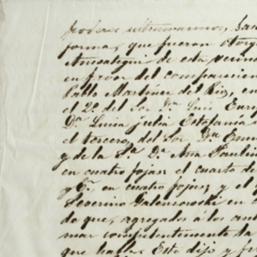 poderes ultramarinos,
forma, que fueron otorg
Amusategui de esta vecind
en favor del comparecien
Pablo Martinez del Rio, en
el 2º del Sor. Dn. Luis
Da. Luisa Julia Estefania
el tercero, del Sor. Dn.
y de la Sra. Da. Ana Paulin
en cuatro fojas, el cuarto de
en cuatro fojas, y el
Severino Galezowski en
de que, agregados á los
mar competentemente la
que halla. Esto dijo y